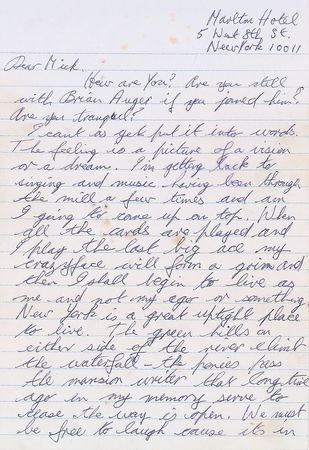 Marlton Hotel
5 West 8th St.
New York 10011
Dear Mick.
How are you? Are you still
with Brian Auger if you joined him?
Are you tranquil?
I cant as yet put it into words.
The feeling is a picture of a vision
or a dream. I'm getting back to
singing and music having been through
the mill a few times and am
I going to come up on top. When
all the cards are played and
I play the last big ace my
crazyface will form a grin and
then I shall begin to live as
me and not my ego or something.
New York is a great uptight place
to live. The green hills on
either side of the river climb
the waterfall - the ponies pass
the mansion writer that long time
ago in my memory serve to
tease the way is open. We must
be free to laugh cause its in